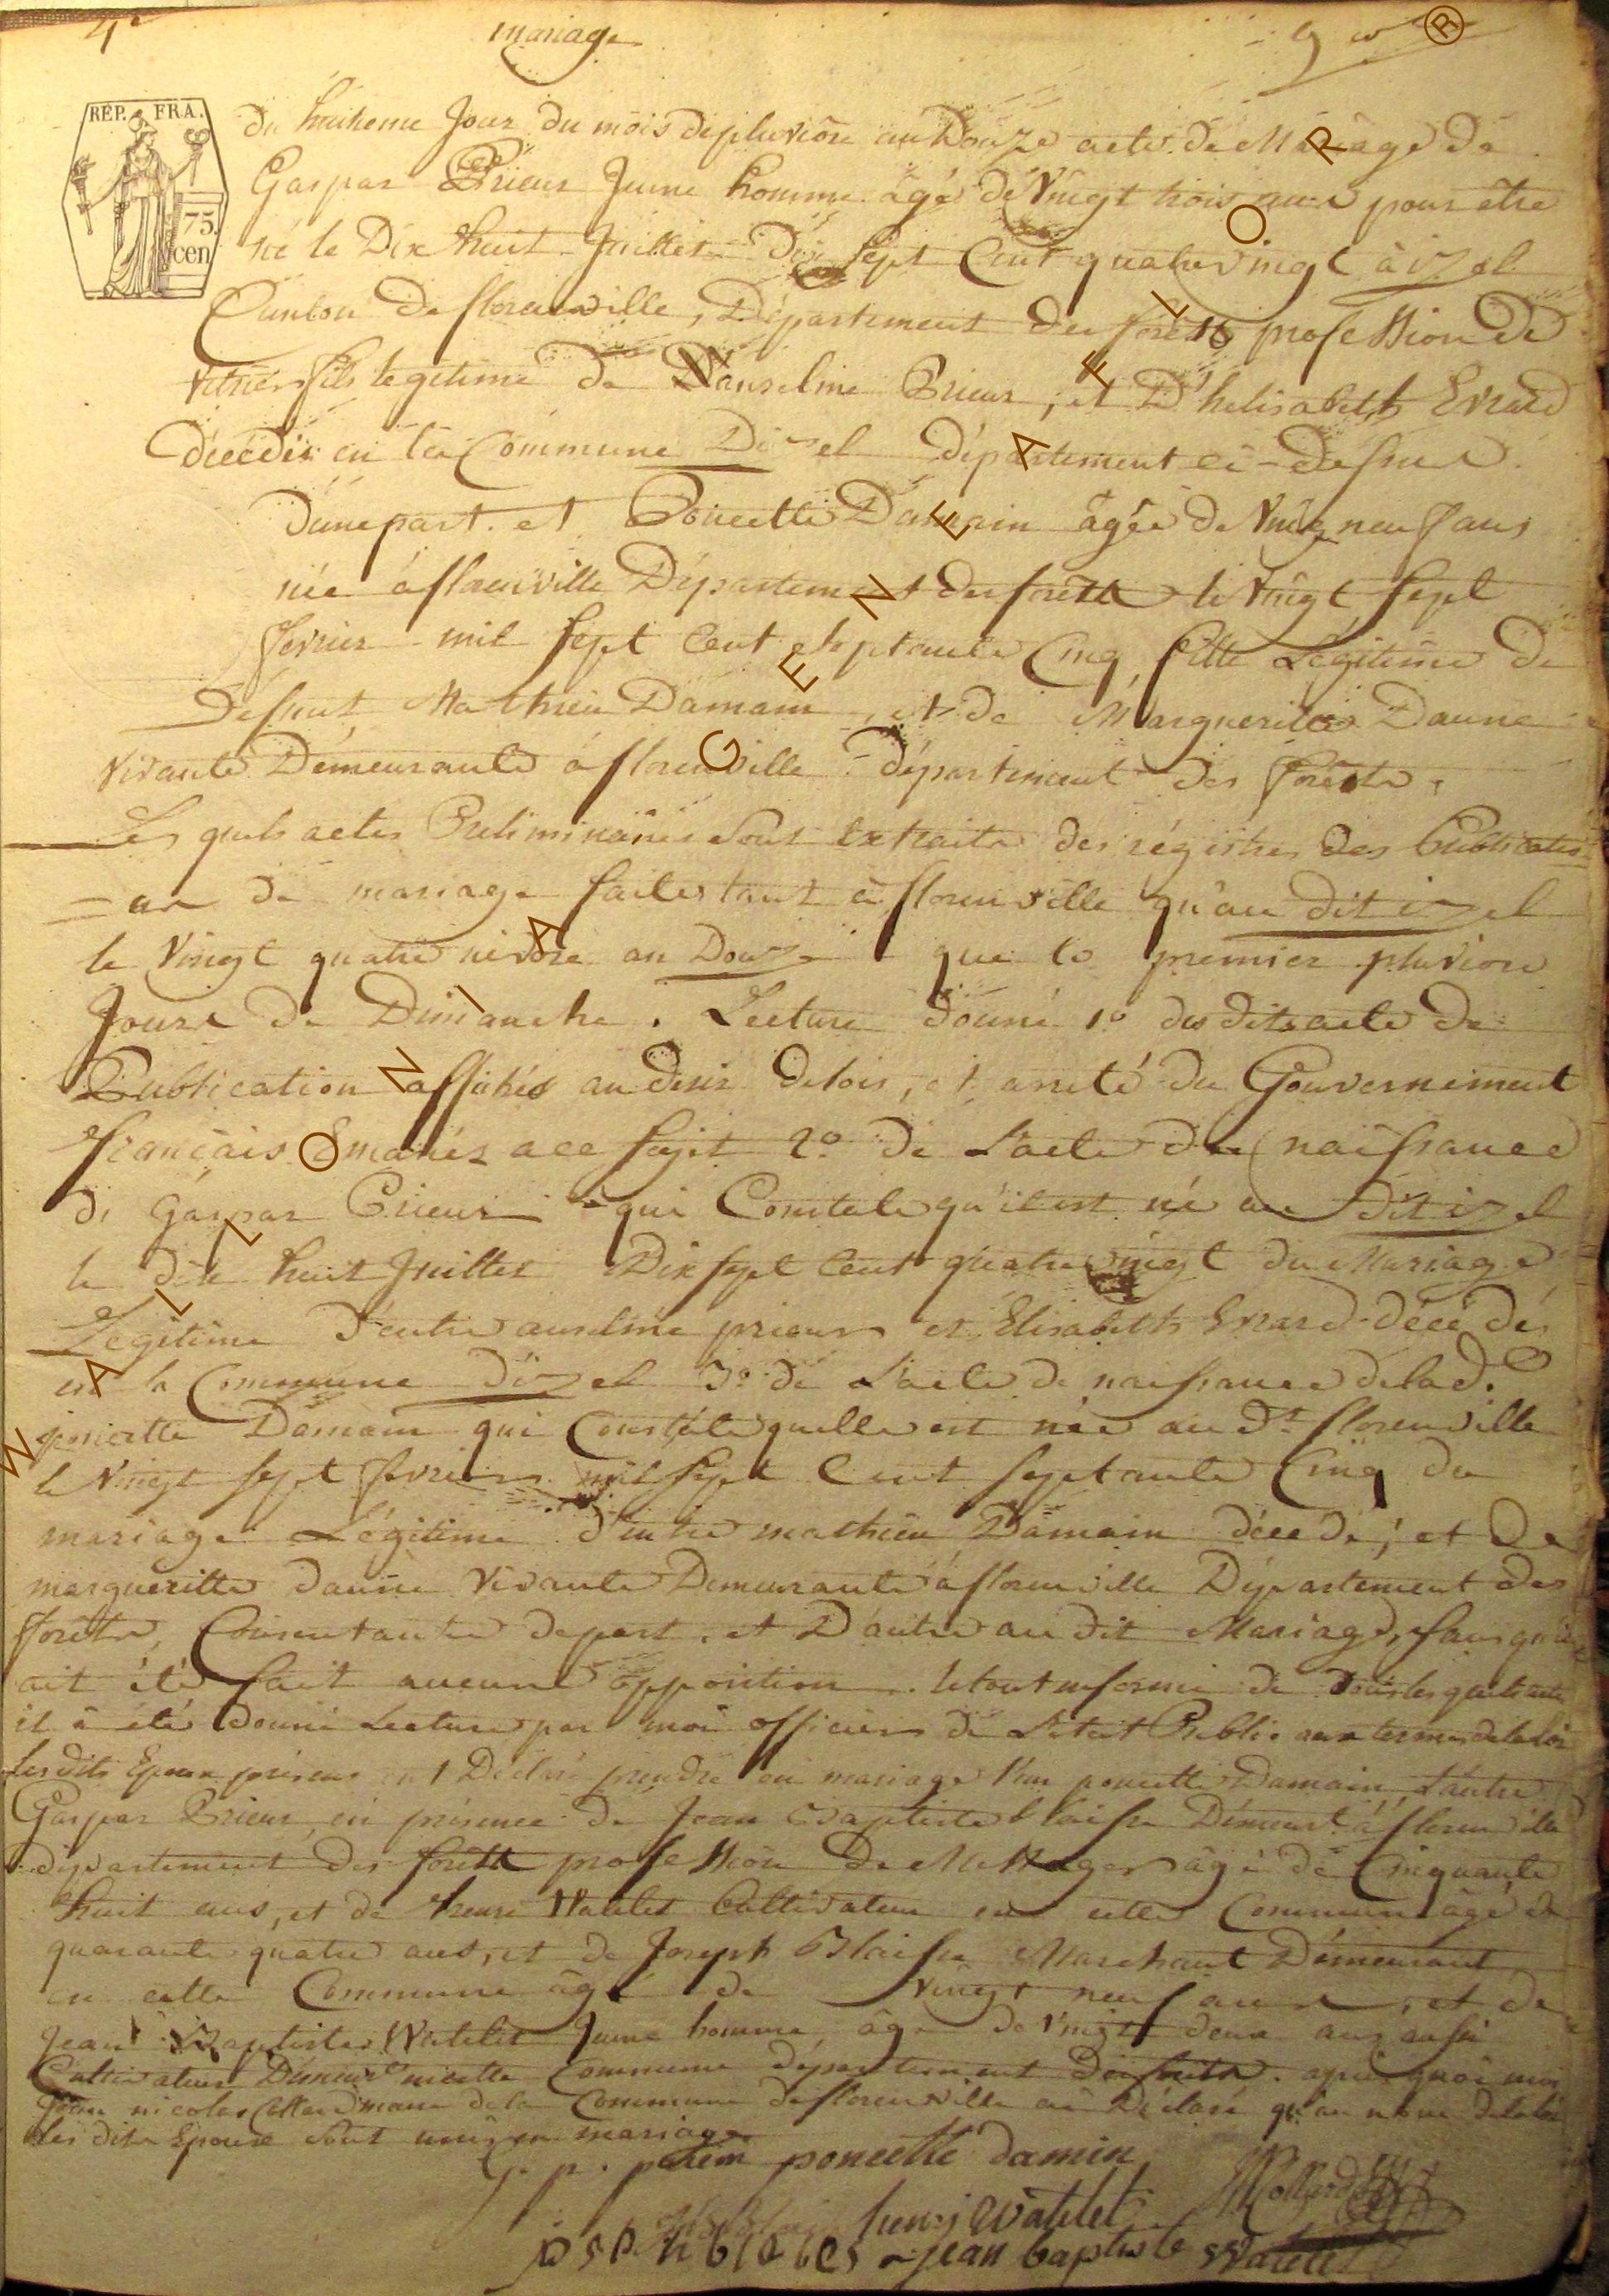 4e mariage 9
RÉP. FRA.
75. cen
du huitieme Jour du mois depluviôse an Douze acte de Mariage de
Gaspar Prieur Jeune homme âgé de Vingt trois ans pour être
né le Dix huit Juillet Dix Sept Cent quatre vingt à izel
Canton de florenville, Département des forêts profession de
vitrier fils legitime de D'anselme Prieur, et D'helisabeth Evrard
décédés en la Commune Dizel département ci-dessus
d'une part. et Poncette Damain âgée de Vingt neuf ans
née à florenville Département des forêts le Vingt Sept
fevrier mil Sept Cent septante Cinq, fille Légitime de
Defunt Mathieu Damain, et de Margueritte Daune
vivante Démeurante à florenville département des forêts,
Les quels actes Préliminaires Sont Extraits des régistres des Publicatio
= ns de mariage faites tant à florenville qu'au dit izel
le Vingt quatre nivose an Douze que le premier pluviose
Jours de Dimanche. Lecture donné 1o des dits acte de
Publication affichés au desir delois, et arreté du Gouvernement
français Emanés a ce sujet 2o de L'acte de naissance
de Gaspar Prieur qui Constate qu'il est né au dit izel
le dix huit Juillet Dix sept Cent quatre vingt du Mariage
Légitime d'entre anselme prieur et Elisabeth Evrard décédés
en la Commune dizel 3o de L'acte de naissance delad.
poncette Damain qui Constate quelle est née au dt florenville
le Vingt Sept fevrier mil Sept Cent septante Cinq du
mariage Légitime d'entre mathieu Damain décédé; et de
margueritte daune Vivante Demeurante à florenville Département des
forêts, Consentante depart. et D'autre au dit Mariage, sans qu'il
ait été fait aucune opposition. le tout informé de tous lesquels actes
il à été donné Lecture par moi officier de L'état Public aux termes de la loi
les dits Epoux présens ont Déclaré prendre en mariage l'un poncette Damain, L'autre
Gaspar Prieur, en présence de Jean Baptiste blaisse Démeurt à florenville
département des forêts profession de Messager âgé de Cinquante
huit ans, et de henri Watelet Cultivateur en cette Commune âgé de
quarante quatre ans, et de Joseph Blaisse Marchant Démeurant
en cette Commune âgé de vingt neuf ans, et de
Jean Baptiste Watelet Jeune homme, âgé de vingt deux ans aussi
Cultivateur Démeurt en cette Commune département des forêts. après quoi moi
Jean nicolas Collard maire de la Commune de florenville ai Déclaré qu'au nom de la loi
les dits Epoux sont unis en mariage
poncette damin
JN Collard
henri watelet
jean baptiste watelet
WALLONIA GENEAFLOR ®